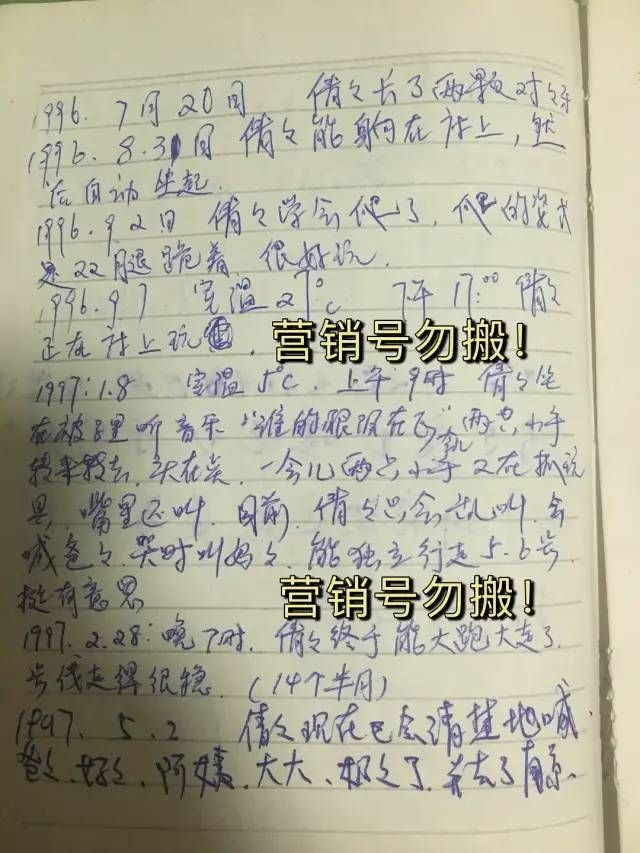 1996. 7月20日 倩々长了两颗对々牙
1996. 8.31日 倩々能躺在床上,然
后自动坐起.
1996. 9.2日 倩々学会爬了,爬的姿式
是双腿跪着 很好玩.
1996. 9.7 室温27℃ 下午17:00 倩々
正在床上玩.
营销号勿搬!
1997:1.8 室温5℃. 上午9时 倩々坐
在被里听音乐 "谁的眼泪在飞" 两只小手
转来转去. 头在晃. 一会儿两只小手又在抓玩
具. 嘴里还叫. 目前. 倩々只会乱叫. 会
喊爸々. 哭时叫妈々. 能独立行走5.6步.
挺有意思
营销号勿搬!
1997. 2.28:晚7时. 倩々终于能大跑大走了.
步伐走得很稳. (14个半月)
1997. 5.2 倩々现在已会清楚地喊.
爸々. 妈々. 阿姨. 大大.